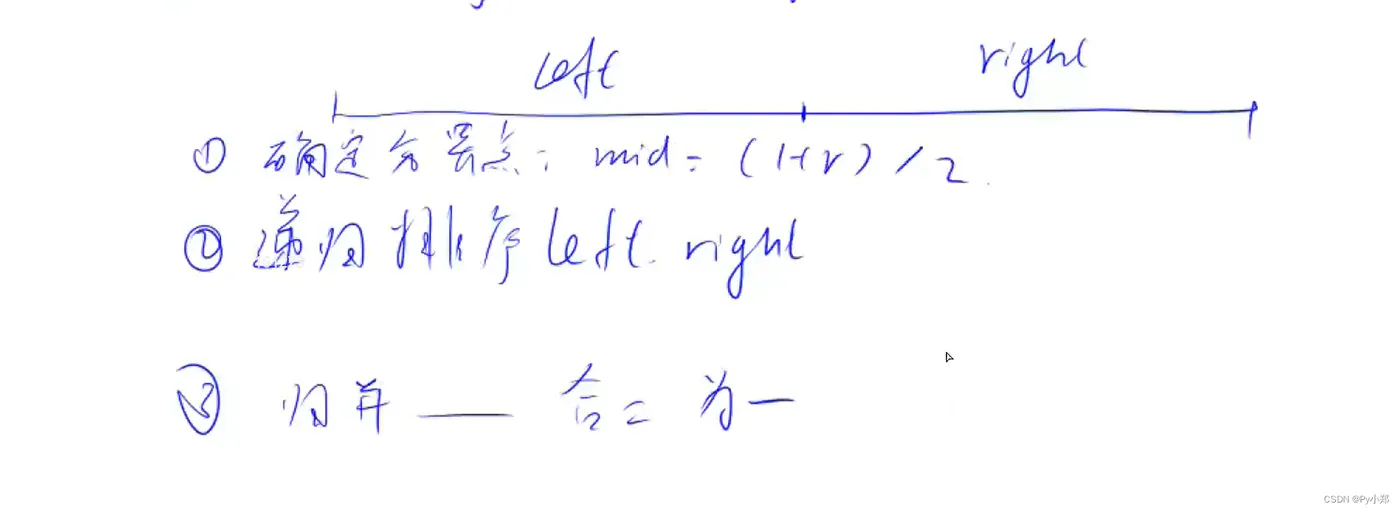 left right
① 确定分界点: mid = (l+r) / 2
② 递归排序 left. right
③ 归并 —— 合二为一
CSDN @Py小郑